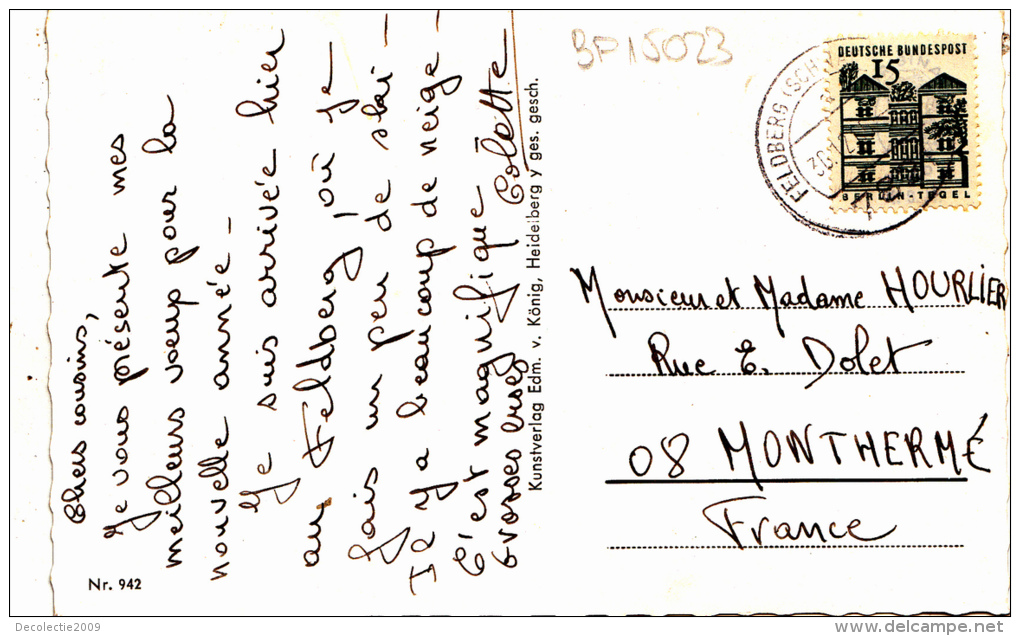 Chers cousins,
Je vous présente mes
meilleurs voeux pour la
nouvelle année -
Je suis arrivée hier
au Feldberg, où je
fais un peu de ski -
Il y a beaucoup de neige -
C'est magnifique
Grosses bises Colette
Nr. 942
Kunstverlag Edm. v. König, Heidelberg y ges. gesch.
BP15023
FELDBERG (SCH
30.1
DEUTSCHE BUNDESPOST
15
BERLIN-TEGEL
Monsieur et Madame HOURLIER
Rue E. Dolet
08 MONTHERMÉ
France
Decolectie2009
delcampe.net